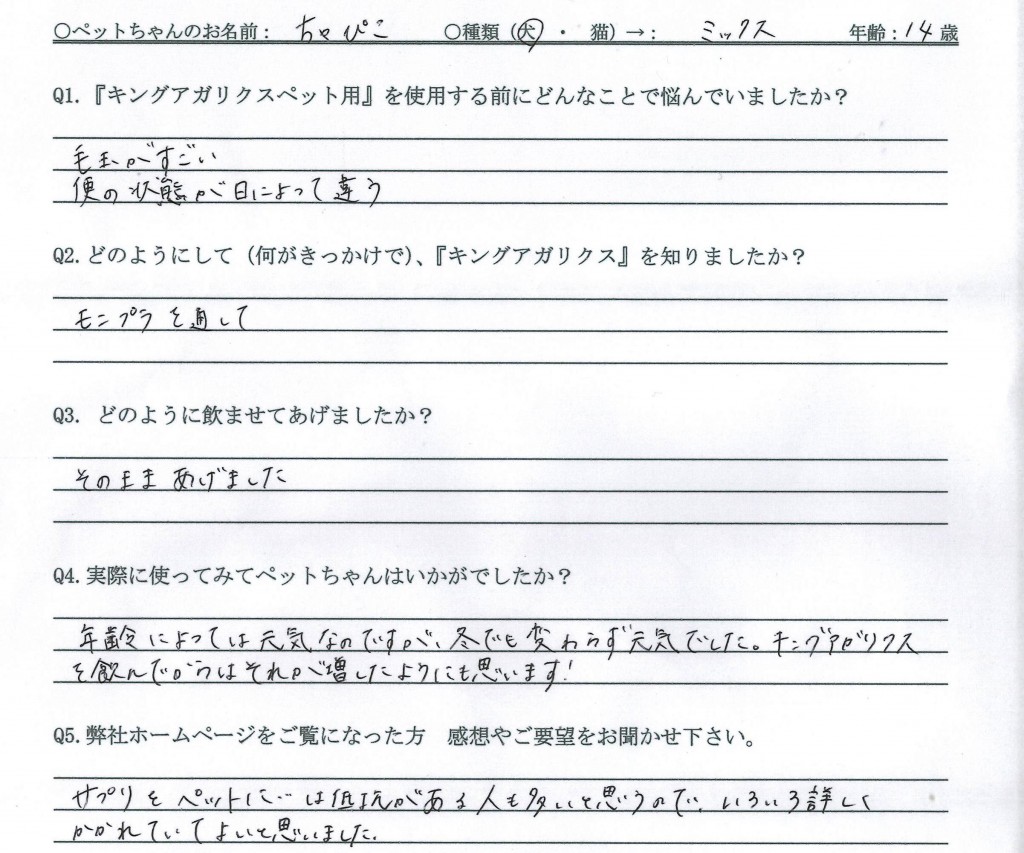 ○ペットちゃんのお名前： ちゃぴこ ○種類（犬・ 猫）→： ミックス 年齢：14 歳
Q1.『キングアガリクスペット用』を使用する前にどんなことで悩んでいましたか？
毛玉がすごい
便の状態が日によって違う
Q2.どのようにして（何がきっかけで）、『キングアガリクス』を知りましたか？
モニプラを通して
Q3. どのように飲ませてあげましたか？
そのままあげました
Q4.実際に使ってみてペットちゃんはいかがでしたか？
年齢によっては元気なのですが、冬でも変わらず元気でした。キングアガリクス
を飲んでからはそれが増したようにも思います!
Q5.弊社ホームページをご覧になった方 感想やご要望をお聞かせ下さい。
サプリをペットに…は抵抗がある人も多いと思うので、いろいろ詳しく
かかれていてよいと思いました.